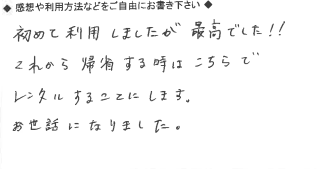 ◆ 感想や利用方法などをご自由にお書き下さい ◆
初めて利用しましたが 最高でした!!
これから 帰省する時は こちらで
レンタルすることにします。
お世話になりました。